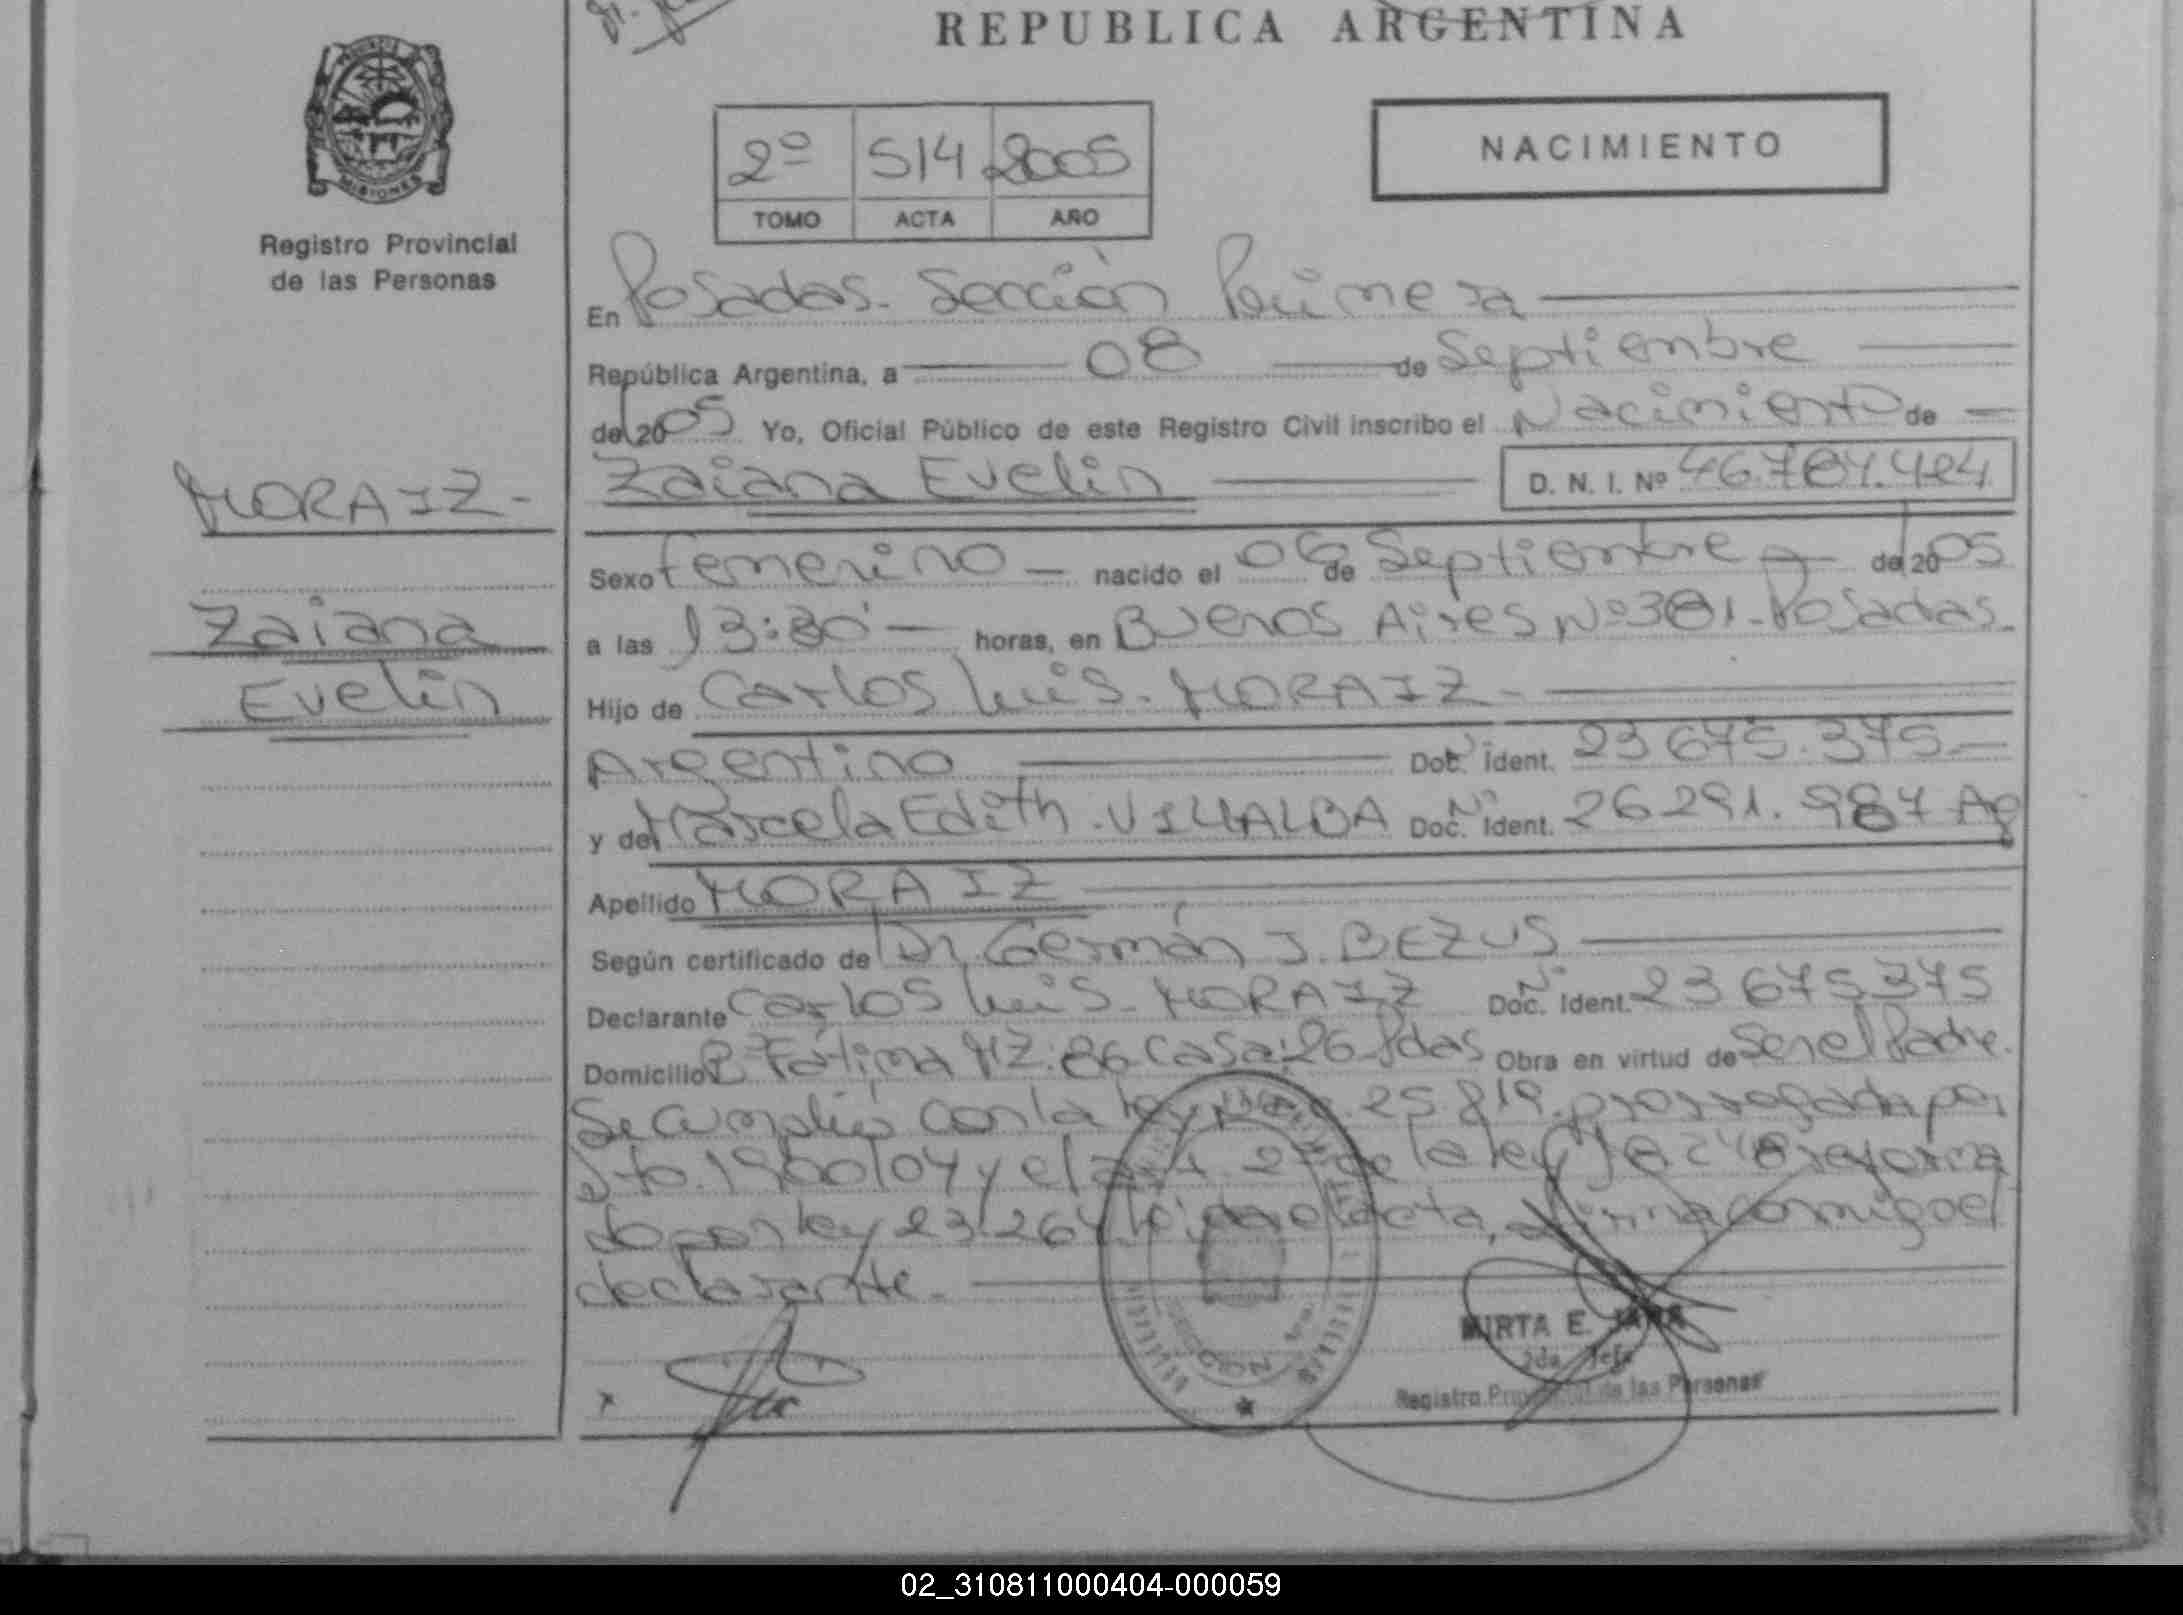 REPUBLICA ARGENTINA
MISIONES
Registro Provincial
de las Personas
2º 514 2005
TOMO ACTA AÑO
NACIMIENTO
En Posadas. Sección Primera
República Argentina, a 08 de Septiembre
del 2005 Yo, Oficial Público de este Registro Civil inscribo el Nacimiento de
MORAIZ-
Zaiana
Evelin
Zaiana Evelin D. N. I. Nº
Sexo femenino nacido el de Septiembre del 2005
a las horas, en Buenos Aires Nº 381-Posadas.
Hijo de Carlos Luis. MORAIZ-
Argentino Doc. Nº Ident. 23 675.375
y de Marcela Edith. VILLALBA Doc. Nº Ident. 26 291.987 Ag
Apellido MORAIZ
Según certificado de Dr. Germán J. BEZUS
Declarante Carlos Luis. MORAIZ Doc. Nº Ident. 23 675375
Domicilio Bº Fátima MZ: 86 Casa: 26 Pdas Obra en virtud de Ser el Padre.
Se cumplió con la ley 25.819. prorrogada por
Dto. 1900/04 y el art. 2º de la ley reforma
do por ley 23.264. leída el acta, firma conmigo el
declarante.
MIRTA E. JARA
2da. Jefe
Registro Provincial de las Personas
02_310811000404-000059